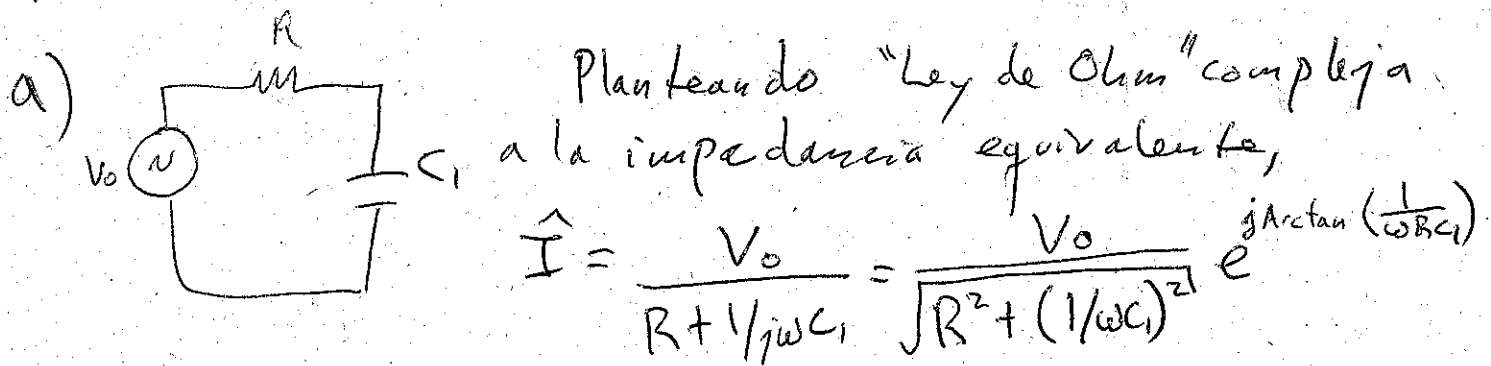 a)
R
V₀
C₁
Planteando "Ley de Ohm" compleja
a la impedancia equivalente,
Î = V₀ / (R + 1/jωC₁) = V₀ / √(R² + (1/ωC₁)²) e^(j Arctan (1/(ωRC₁)))